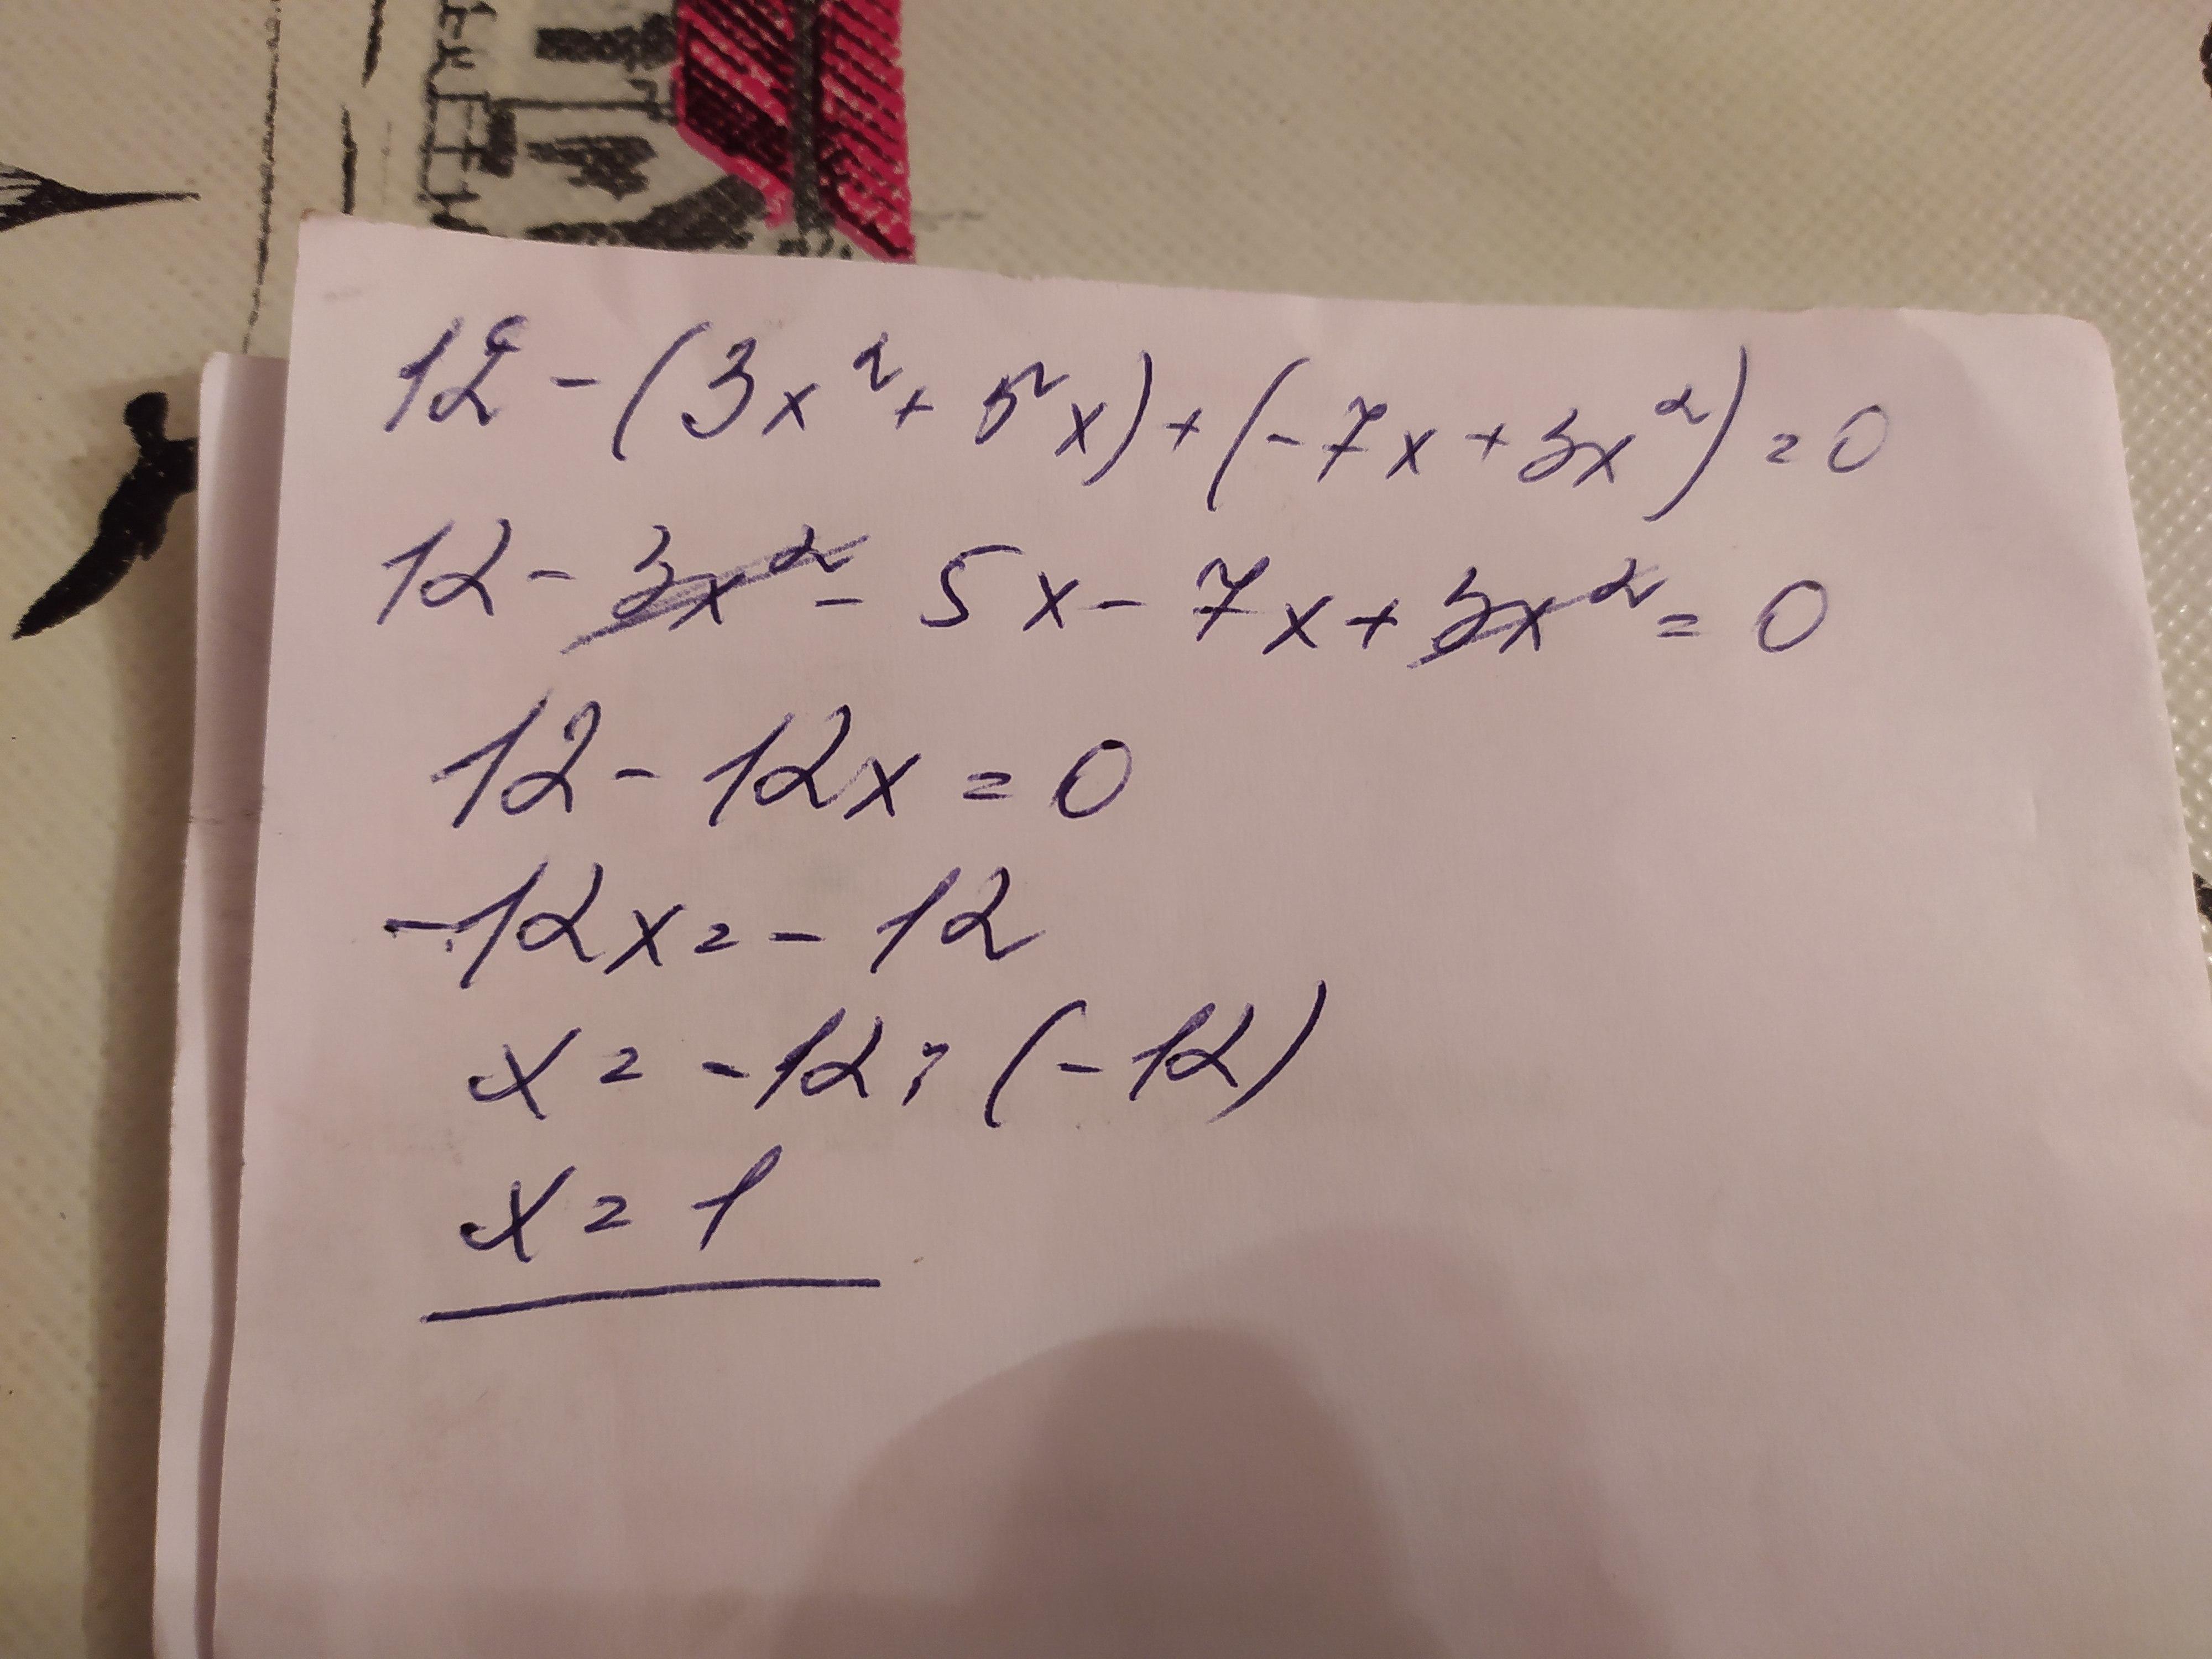 12 - (3x² + 5x) + (-7x + 3x²) = 0
12 - 3x² - 5x - 7x + 3x² = 0
12 - 12x = 0
-12x = - 12
x = -12 : (-12)
x = 1